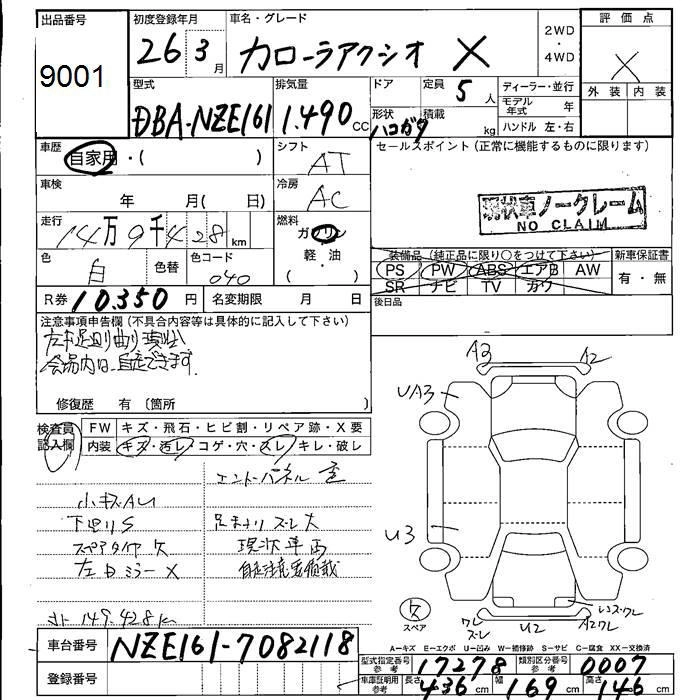 出品番号
9001
初度登録年月
26 3 月
車名・グレード
カローラアクシオ X
2WD
・
4WD
評価点
X
外装 内装
型式
DBA-NZE161
排気量
1.490 CC
ドア
形状
ハコガタ
定員
5 人
積載
kg
ディーラー・並行
モデル年式 年
ハンドル 左・右
車歴
自家用・( )
シフト
AT
セールスポイント(正常に機能するものに限ります)
車検
年 月( 日)
冷房
AC
現状車ノークレーム
NO CLAIM
走行
14万9千428 km
燃料
ガソリン
軽・油
・( )
色
白
色替
色コード
040
装備品(純正品に限り○をつけて下さい)
PS PW ABS エアB AW
SR ナビ TV カワ
新車保証書
有・無
R券 10,350 円
名変期限 月 日
後日品
注意事項申告欄(不具合内容等は具体的に記入して下さい)
会場内は自走できます
修復歴 有〔箇所 〕
検査員記入欄
FW キズ・飛石・ヒビ割・リペア跡・X要
内装 キズ・汚レ・コゲ・穴・スレ・キレ・破レ
小キズAU
下廻りS
スペアタイヤ欠
左ドミラーX
149.428k
足まわりズレ大
現状車両
A3
A2
UA3
U3
欠
スペア
ワレ
ズレ
U2
A2ワレ
A-キズ E-エクボ U-凹み W-補修跡 S-サビ C-腐食 XX-交換済
車台番号
NZE161-7082118
登録番号
型式指定番号
参考
17278
類別区分番号
参考
0007
車庫証明用
参考
長さ 436 cm
幅 169 cm
高さ 146 cm